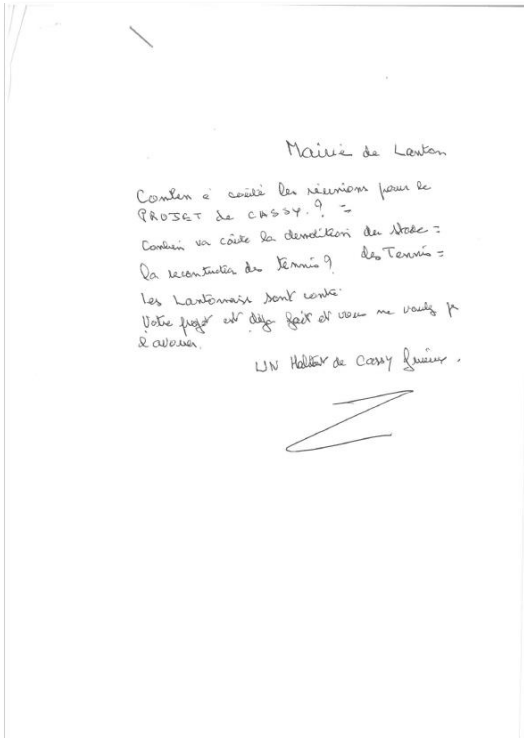 Mairie de Lanton
Combien a coûté les réunions pour le
PROJET de CASSY. ? =
Combien va coûte la demolition du Stade =
la recontuction des tennis ? des Tennis =
Les Lantonnais sont contre.
Votre projet est déja fait et vous ne voulez pas
l'avouer.
UN Habitant de Cassy furieux.